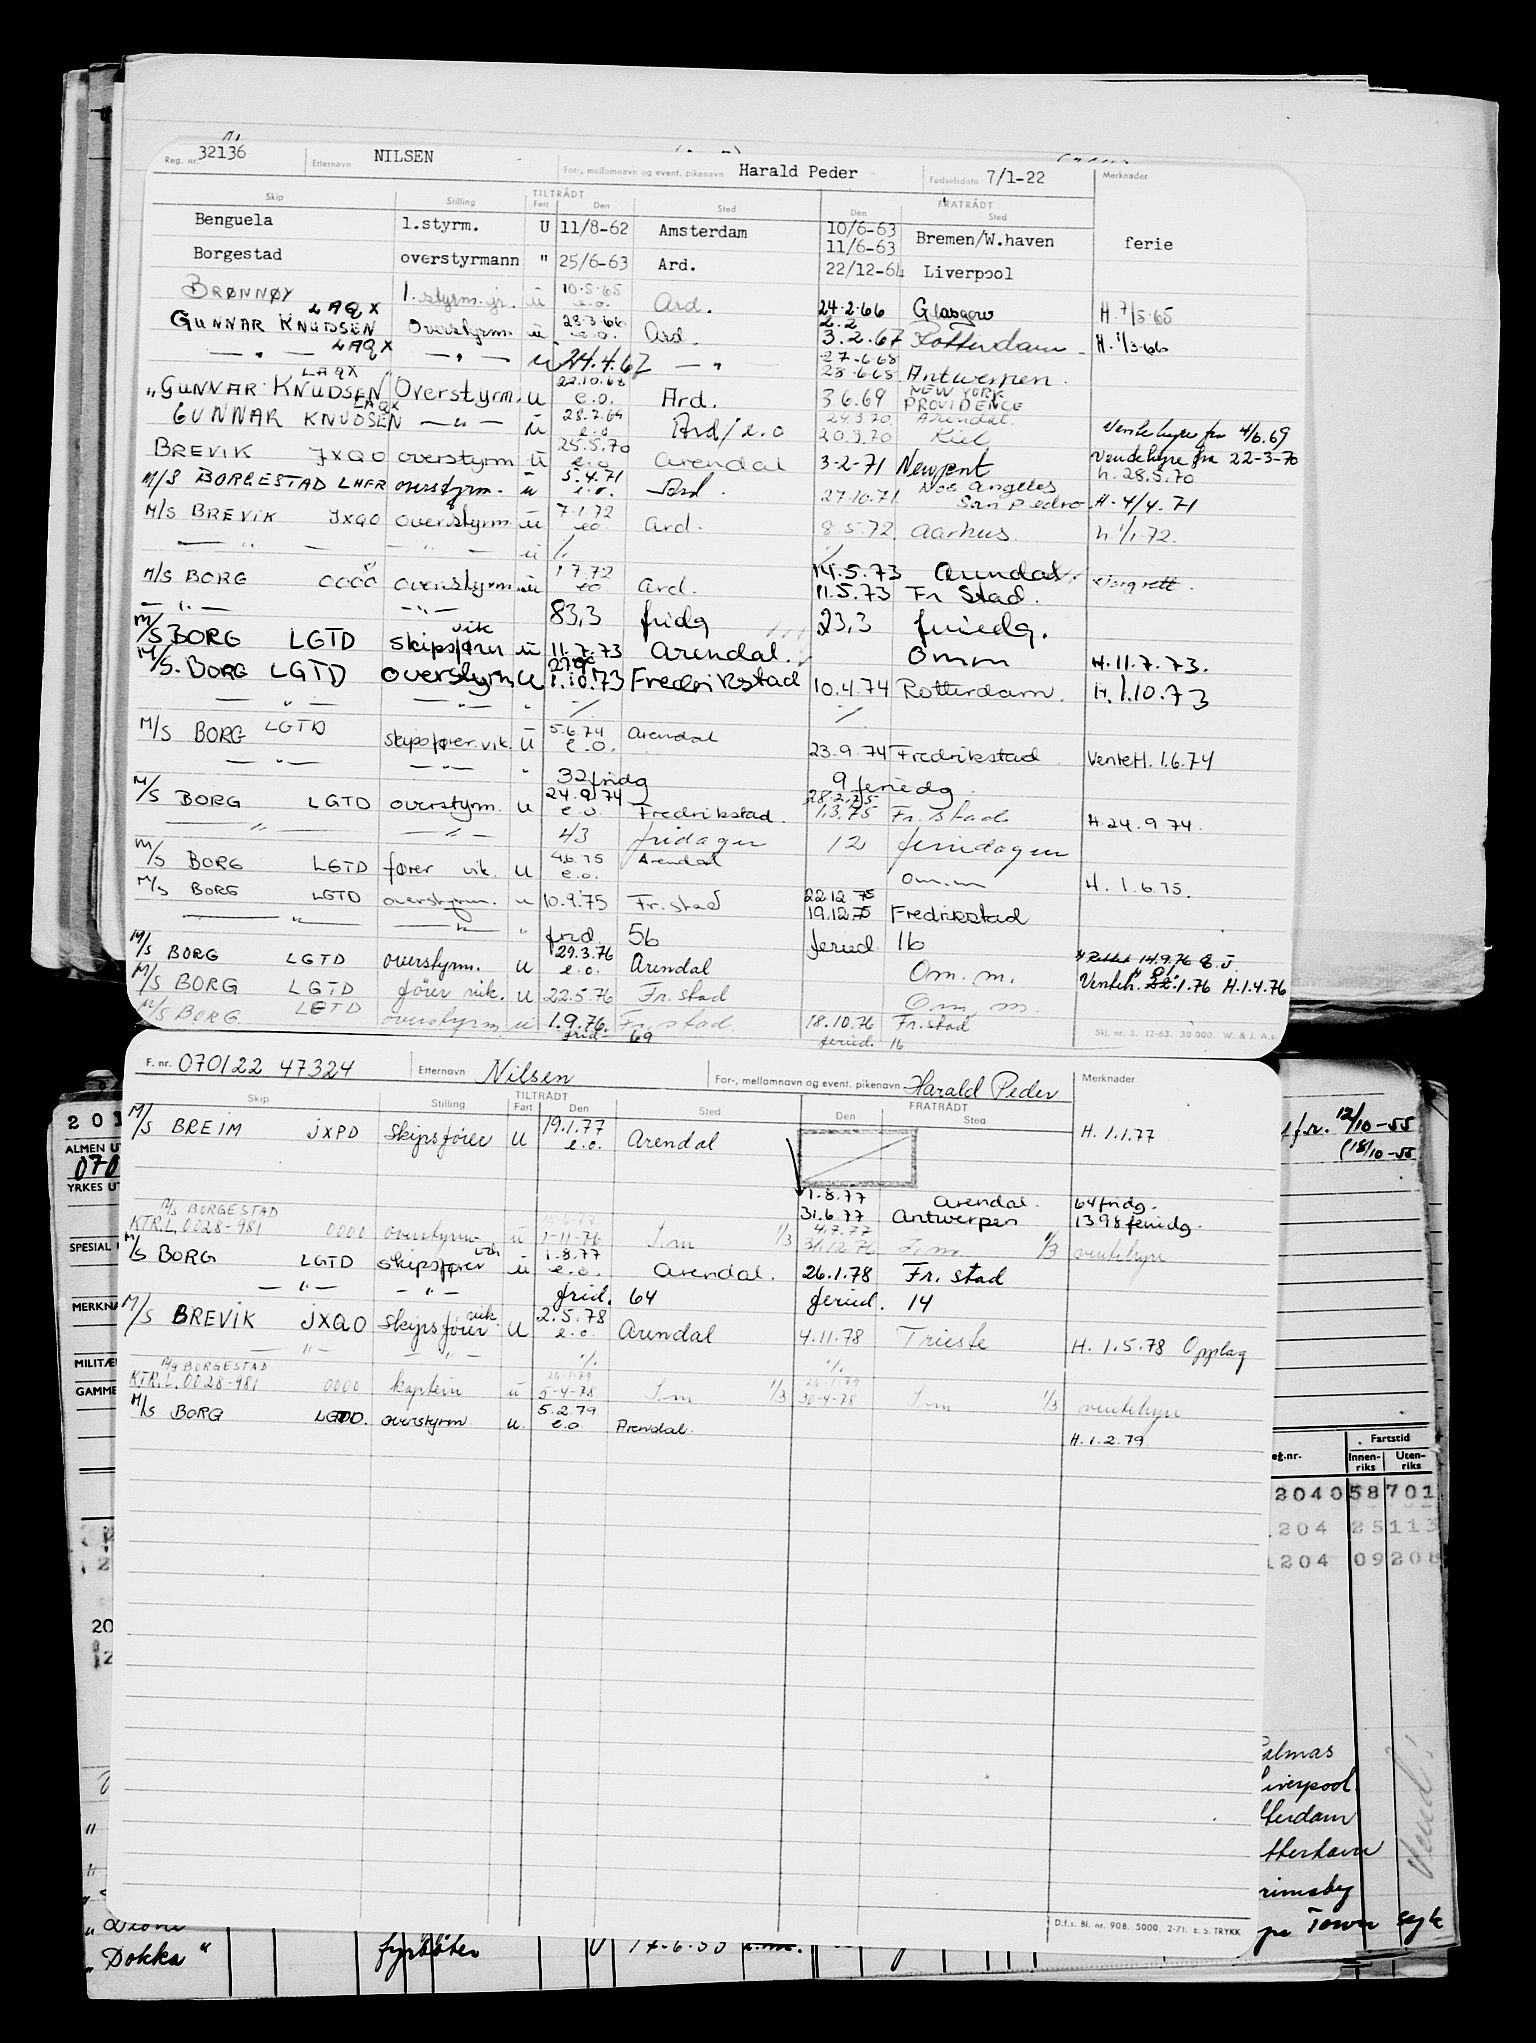 Reg. nr. 32136 Etternavn NILSEN For-, mellomnavn og event. pikenavn Harald Peder Fødselsdato 7/1-22 Merknader
TILTRÅDT FRATRÅDT
Skip Stilling Fart Den Sted Den Sted
Benguela 1.styrm. U 11/8-62 Amsterdam 10/6-63 11/6-63 Bremen/W.haven ferie
Borgestad overstyrmann " 25/6-63 Ard. 22/12-64 Liverpool
BRØNNØY 1. styrm. jr. u 10.5.65 e.o. Ard. 24.2.66 Glasgow H. 7/5.65
LAQX
GUNNAR KNUDSEN Overstyrm. u 28.3.66 e.o. Ard. 2.2 3.2.67 Rotterdam H. 1/3.66
LAQX
— " — — " — u 24.4.67 — " — 27.6.68 28.6.68 Antwerpen.
LAQX
" GUNNAR KNUDSEN Overstyrm. u 22.10.68 e.o. Ard. 3.6.69 NEW YORK PROVIDENCE
LAQX
GUNNAR KNUDSEN — " — u 28.7.69 e.o Ard/e.o 24.3.70 Arendal. 20.3.70 Kiel Ventehyre fra 4/6.69
BREVIK JXQO overstyrm u 25.5.70 e.o Arendal 3-2-71 Newport Ventehyre fra 22-3-70 h. 28.5.70
M/S BORGESTAD LHFR overstyrm. u 5.4.71 e.o. Ard. 27.10.71 Los Angeles San Pedro H. 4/4.71
M/S BREVIK JXQO overstyrm. u 7.1.72 eo Ard. 8.5.72 Aarhus. h. 1/1-72.
— " — — " — u
M/S BORG 0000 overstyrm. u 1.7.72 eo Ard. 14.5.73 Arendal. 11.5.73 Fr Stad.
— " — — " — 83,3 fridg 23,3 feriedg.
M/S BORG LGTD skipsfører vik u 11.7.73 Arendal. Omm H. 11.7.73.
M/S. BORG LGTD overstyrm u 1.10.73 Fredrikstad 10.4.74 Rotterdam. H. 1.10.73
— " — — " — "
M/S BORG LGTD skipsfører vik. u 5.6.74 e.o. Arendal 23.9.74 Fredrikstad VenteH. 1.6.74
— " — — " — " 32 fridg 9 feriedg.
M/S BORG LGTD overstyrm. u 24.9.74 e.o. Fredrikstad. 28.2.75 1.3.75 Fr. stad H. 24.9.74.
— " — — " — 43 fridager 12 feriedager
M/S BORG LGTD fører vik. u 4.6.75 e.o. Arendal Om.m H. 1.6.75.
M/S BORG LGTD overstyrm. u 10.9.75 Fr. stad 22.12.75 19.12.75 Fredrikstad
— " — — " — " frid. 56 feried 16
M/S BORG LGTD overstyrm. u 29.3.76 e.o. Arendal Om. m. 14.9.76
M/S BORG LGTD fører vik. u 22.5.76 Fr. stad Om. m. Venteh. 1.76 H. 1.4.76
M/S BORG LGTD overstyrm u 1.9.76. Fr. stad. 18.10.76 Fr. stad
frid- 69 feried. 16
Skj. nr. 3. 12-63. 30 000. W. & J. A.s
F. nr. 070122 47324 Etternavn Nilsen For-, mellomnavn og event. pikenavn Harald Peder Merknader
TILTRÅDT FRATRÅDT
Skip Stilling Fart Den Sted Den Sted
M/S BREIM JXPD Skipsfører U 19.1.77 e.o. Arendal H. 1.1.77
1.8.77 Arendal. 64 fridg.
31.6.77 Antwerpen 1398 feriedg.
M/S BORGESTAD
KTR.L. 0028-981 0000 overstyrm u 1-11-76 I.m 1/3 4.7.77 31.12.76 I.m 1/3 ventehyre
M/S BORG LGTD skipsfører vik u 1.8.77 e.o. Arendal. 26.1.78 Fr. stad
— " — — " — frid. 64 feried. 14
M/S BREVIK JXQO Skipsfører vik. U 2.5.78 e.o. Arendal 4.11.78 Trieste H. 1.5.78 Opplag
— " — — " —
M/S BORGESTAD
KTR.L. 0028-981 0000 kaptein u 5-4-78 I.m 1/3 30-4-78 I.m 1/3 ventehyre
M/S BORG LGTD. overstyrm u. 5.2.79 e.o Arendal. H. 1.2.79
D.f.s. Bl. nr. 908. 5000. 2-71. E. S. TRYKK
201
ALMEN U
070
YRKES U
SPESIAL
MERKNA
MILITÆ
GAMME
f.r. 12/10-55
(18/10-55
Fartstid
eg.nr. Innenriks Utenriks
2040 58 701
1204 25 113
1204 09 208
20
12
almas
iverpool.
tterdam
tterham
rimsby
Town syk
" Dione
" Dokka " fyrbøter U 17-6-53